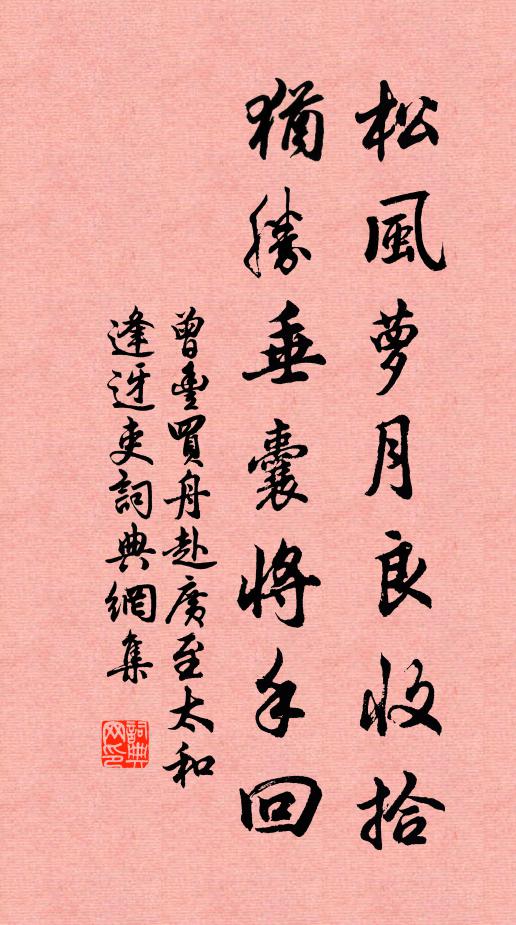 松風夢月良收拾
猶勝垂囊將手回
曾豐買舟赴廣至太和
逢迓吏詞典網集
詞典网印